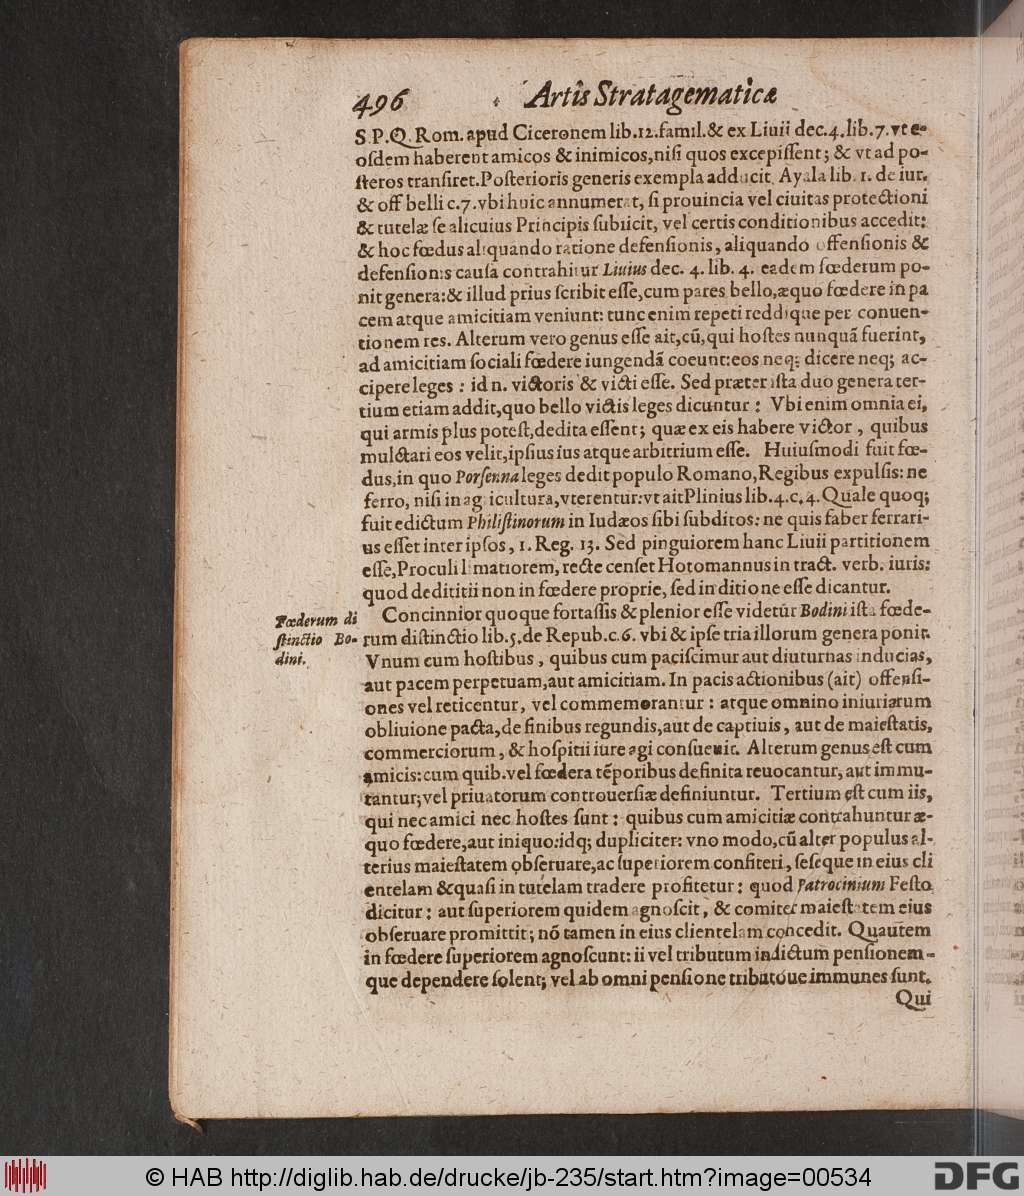 496 Artis Stratagematicæ
S.P.Q. Rom. apud Ciceronem lib.12.famil.& ex Liuii dec.4.lib.7.vt e-
oſdem haberent amicos & inimicos,niſi quos excepiſſent; & vt ad po-
ſteros tranſiret.Poſterioris generis exempla adducit Ayala lib. 1. de iur.
& off belli c.7.vbi huic annumerat, ſi prouincia vel ciuitas protectioni
& tutelæ ſe alicuius Principis ſubiicit, vel certis conditionibus accedit:
& hoc fœdus aliquando ratione defenſionis, aliquando offenſionis &
defenſionis cauſa contrahitur Liuius dec. 4. lib. 4. eadem fœderum po-
nit genera:& illud prius ſcribit eſſe,cum pares bello,æquo fœdere in pa
cem atque amicitiam veniunt: tunc enim repeti reddique per conuen-
tionem res. Alterum vero genus eſſe ait,cũ,qui hoſtes nunquã fuerint,
ad amicitiam ſociali fœdere iungendã coeunt:eos neq; dicere neq; ac-
cipere leges : id n. victoris & victi eſſe. Sed præter iſta duo genera ter-
tium etiam addit,quo bello victis leges dicuntur : Vbi enim omnia ei,
qui armis plus poteſt,dedita eſſent; quæ ex eis habere victor , quibus
mulctari eos velit,ipſius ius atque arbitrium eſſe. Huiuſmodi fuit fœ-
dus,in quo Porſenna leges dedit populo Romano,Regibus expulſis: ne
ferro, niſi in agricultura,vterentur:vt ait Plinius lib.4.c.4.Quale quoq;
fuit edictum Philiſtinorum in Iudæos ſibi ſubditos: ne quis faber ferrari-
us eſſet inter ipſos, 1. Reg. 13. Sed pinguiorem hanc Liuii partitionem
eſſe,Proculi limatiorem, recte cenſet Hotomannus in tract. verb. iuris:
quod dedititii non in fœdere proprie, ſed in ditione eſſe dicantur.
Fœderum di
ſtinctio Bo-
dini.
Concinnior quoque fortaſſis & plenior eſſe videtur Bodini iſta fœde-
rum diſtinctio lib.5.de Repub.c.6. vbi & ipſe tria illorum genera ponit.
Vnum cum hoſtibus , quibus cum paciſcimur aut diuturnas inducias,
aut pacem perpetuam,aut amicitiam. In pacis actionibus (ait) offenſi-
ones vel reticentur, vel commemorantur : atque omnino iniuriarum
obliuione pacta,de finibus regundis,aut de captiuis, aut de maieſtatis,
commerciorum, & hoſpitii iure agi conſueuit. Alterum genus eſt cum
amicis:cum quib.vel fœdera tẽporibus definita reuocantur, aut immu-
tantur;vel priuatorum controuerſiæ definiuntur. Tertium eſt cum iis,
qui nec amici nec hoſtes ſunt : quibus cum amicitiæ contrahuntur æ-
quo fœdere,aut iniquo:idq; dupliciter: vno modo,cũ alter populus al-
terius maieſtatem obſeruare,ac ſuperiorem confiteri, ſeſeque in eius cli
entelam &quaſi in tutelam tradere profitetur : quod Patrocinium Feſto
dicitur : aut ſuperiorem quidem agnoſcit, & comiter maieſtatem eius
obſeruare promittit; nõ tamen in eius clientelam concedit. Qui autem
in fœdere ſuperiorem agnoſcunt: ii vel tributum indictum penſionem-
que dependere ſolent; vel ab omni penſione tributoue immunes ſunt.
Qui
© HAB http://diglib.hab.de/drucke/jb-235/start.htm?image=00534
DFG